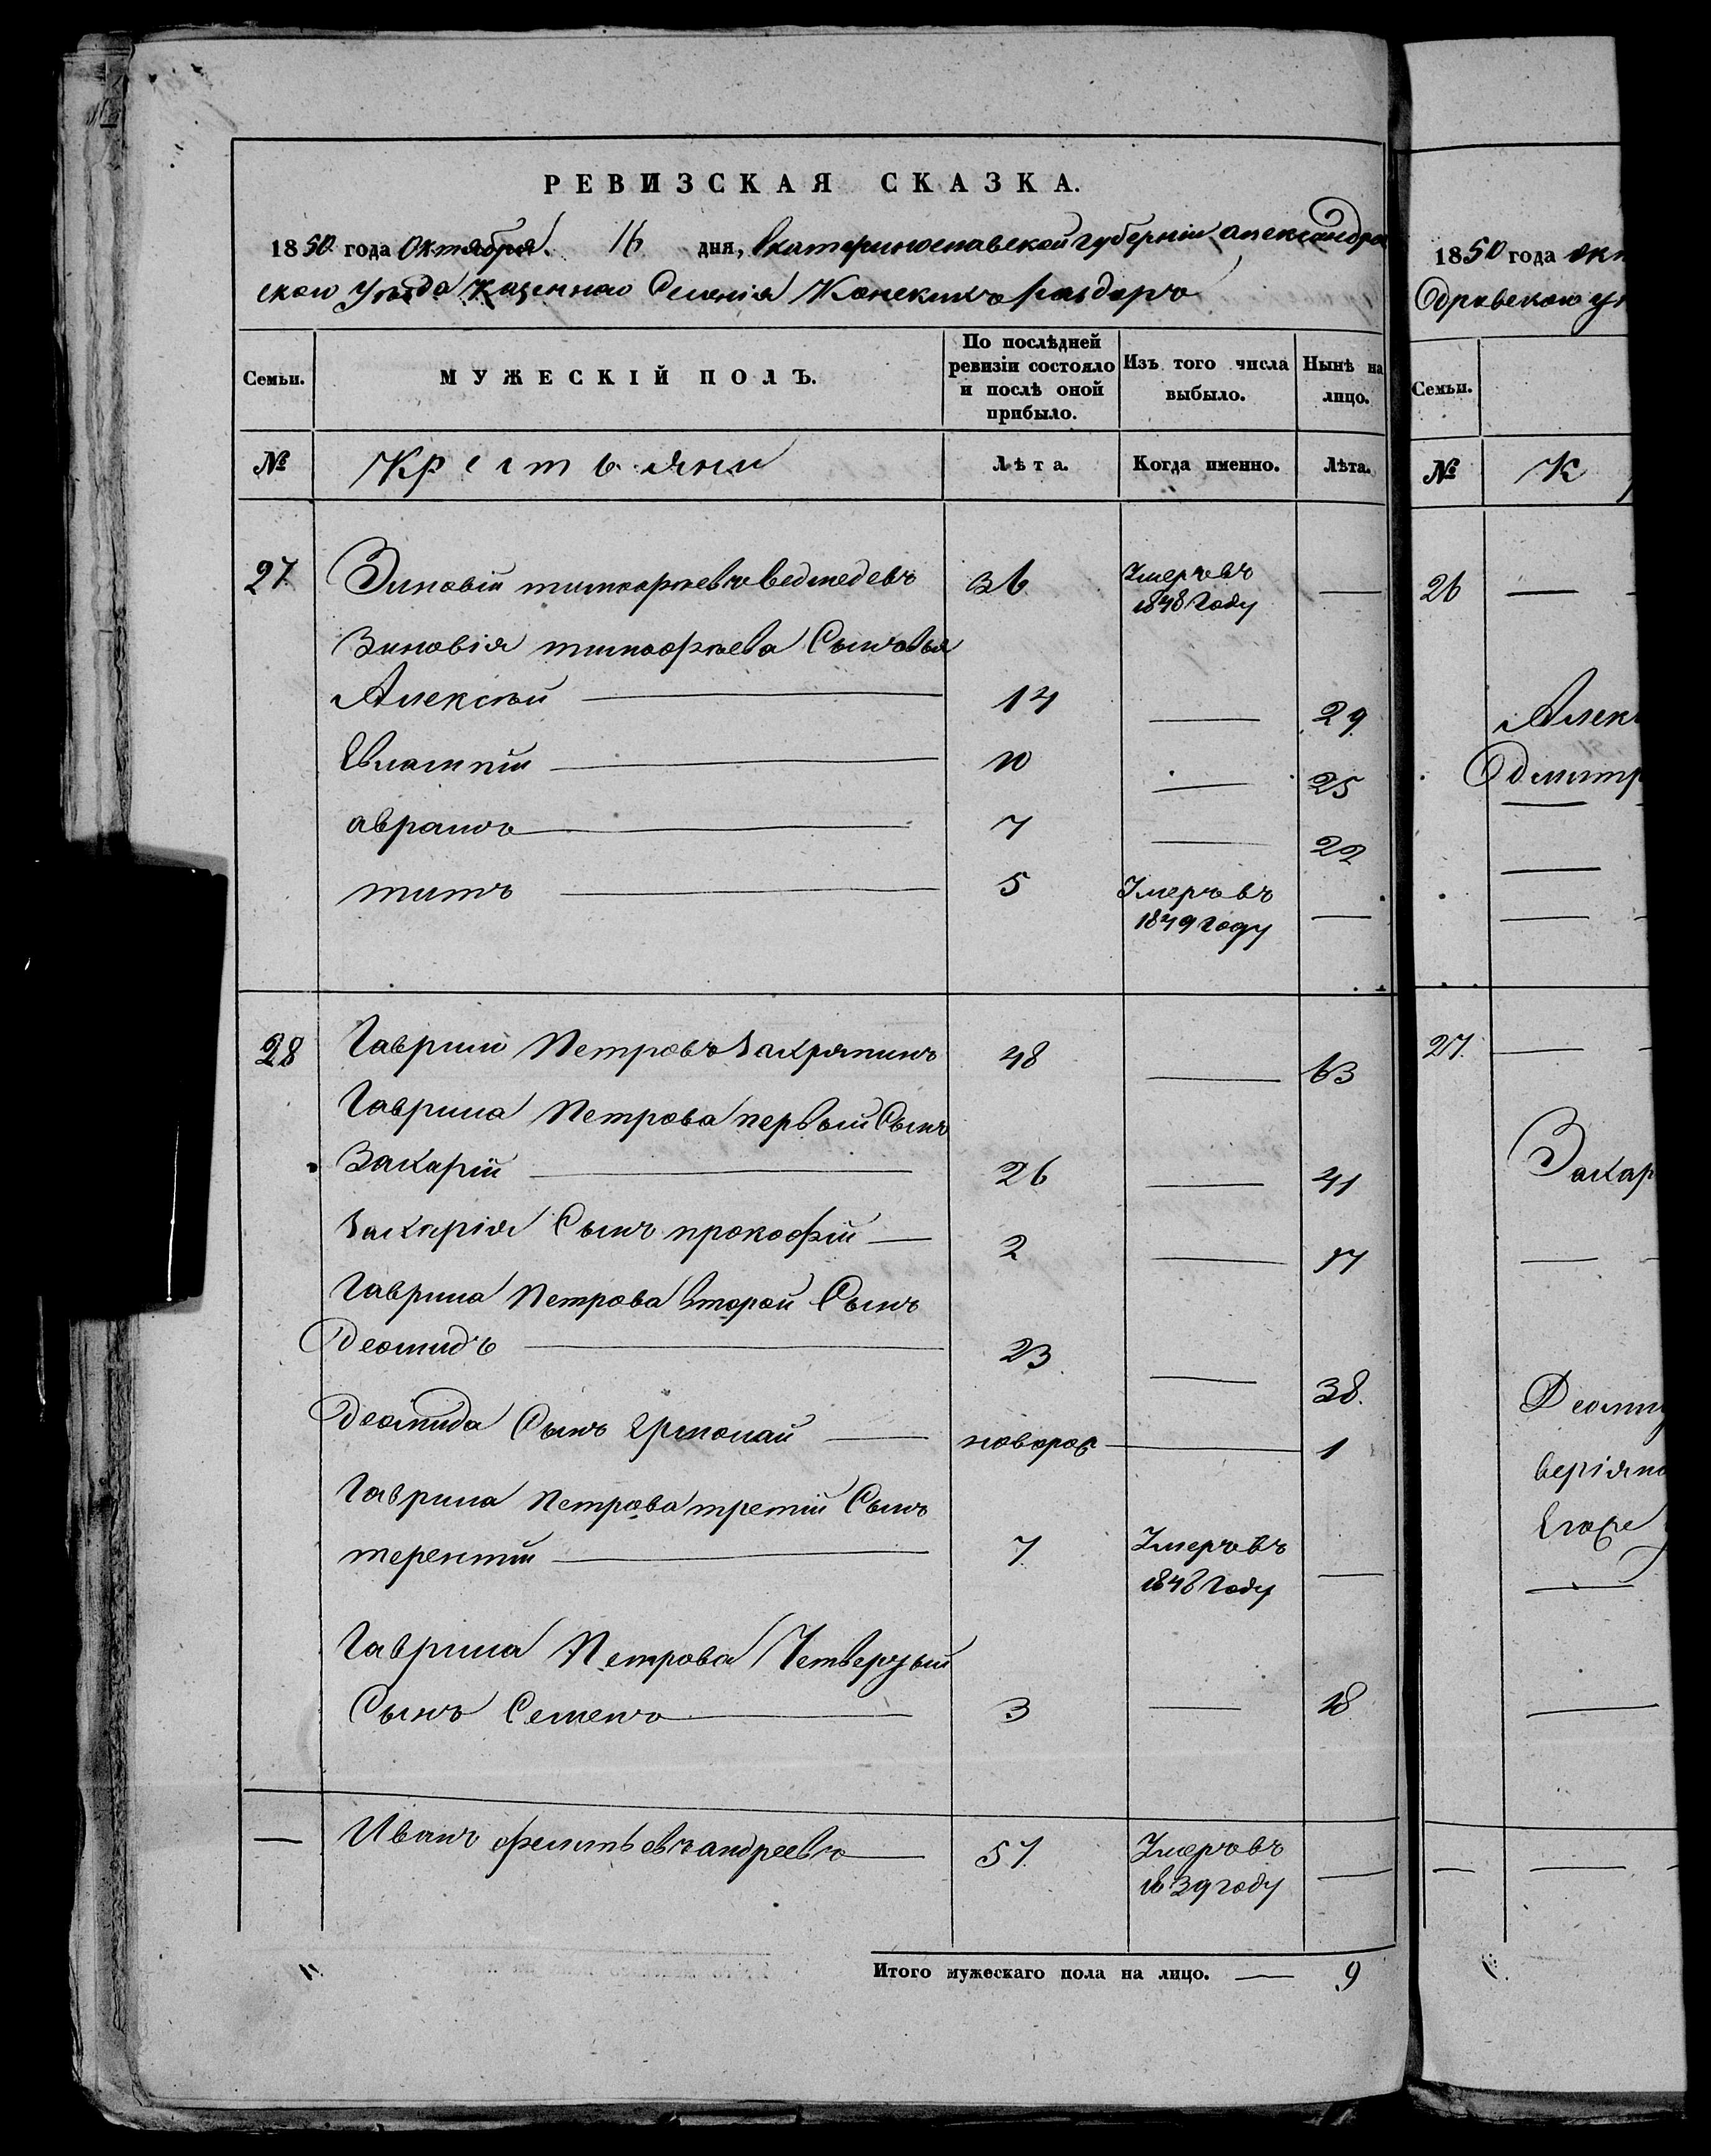 РЕВИЗСКАЯ СКАЗКА.
1850 года Октября 16 дня, Екатеринославской губерніи Александров
скаго Уѣзда Казеннаго Селенія Конскихъ Раздоръ
Семьи. МУЖЕСКІЙ ПОЛЪ. По послѣдней ревизіи состояло и послѣ оной прибыло. Изъ того числа выбыло. Нынѣ на лицо.
№ Крестьяни Лѣта. Когда именно. Лѣта.
27 Зиновій тимофѣевъ ведмедевъ 36 Умеръ въ 1848 Году —
Зиновія тимофѣева Сыновья
Алексѣй — 14 — 29
Евлампій — 10 — 25
аврамъ — 7 — 22
титъ — 5 Умеръ въ 1849 году —
28 Гаврило Петровъ Закряпинъ 48 — 63
Гаврила Петрова первый Сынъ
Захарій — 26 — 41
Захарія Сынъ прокофій — 2 — 17
Гаврила Петрова второй Сынъ
Деомидъ — 23 — 38
Деомида Сынъ Ермолай — новорож — 1
Гаврила Петрова третій Сынъ
терентій — 7 Умеръ въ 1848 Году —
Гаврила Петрова Четвертый
Сынъ Семенъ — 3 — 18
— Иванъ андреевъ — 57 Умеръ въ 1839 году —
Итого мужескаго пола на лицо. — 9
1850 года окт
дровскаго уѣ
Семьи.
№ К
26 —
Алек
Дмитр
27 —
Захар
Деоми